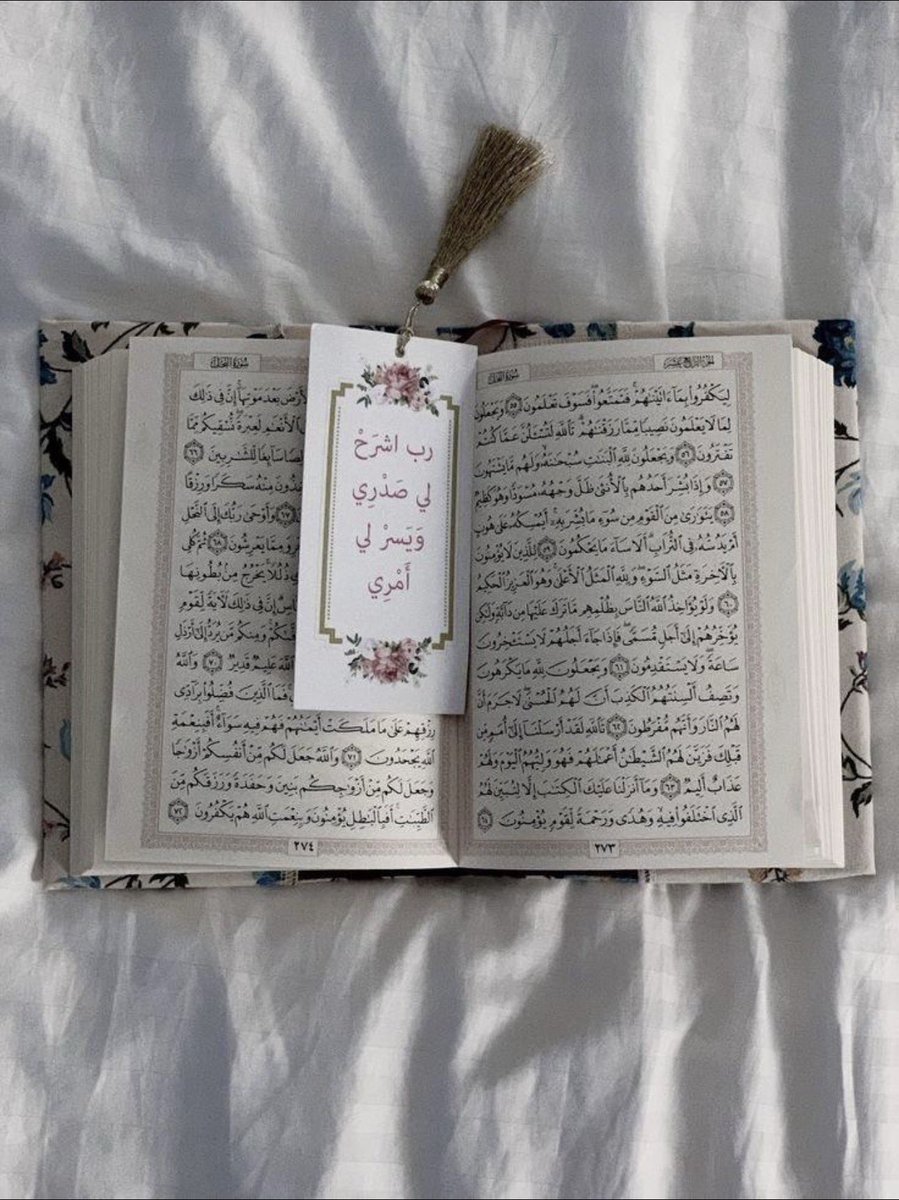 الجزء الرابع عشر
سورة النحل
لِيَكْفُرُوا۟ بِمَآ ءَاتَيْنَٰهُمْ ۚ فَتَمَتَّعُوا۟ ۖ فَسَوْفَ تَعْلَمُونَ ٥٥ وَيَجْعَلُونَ
لِمَا لَا يَعْلَمُونَ نَصِيبًا مِّمَّا رَزَقْنَٰهُمْ ۗ تَٱللَّهِ لَتُسْـَٔلُنَّ عَمَّا كُنتُمْ
تَفْتَرُونَ ٥٦ وَيَجْعَلُونَ لِلَّهِ ٱلْبَنَٰتِ سُبْحَٰنَهُۥ ۙ وَلَهُم مَّا يَشْتَهُونَ
٥٧ وَإِذَا بُشِّرَ أَحَدُهُم بِٱلْأُنثَىٰ ظَلَّ وَجْهُهُۥ مُسْوَدًّا وَهُوَ كَظِيمٌ
٥٨ يَتَوَٰرَىٰ مِنَ ٱلْقَوْمِ مِن سُوٓءِ مَا بُشِّرَ بِهِۦٓ ۚ أَيُمْسِكُهُۥ عَلَىٰ هُونٍ
أَمْ يَدُسُّهُۥ فِى ٱلتُّرَابِ ۗ أَلَا سَآءَ مَا يَحْكُمُونَ ٥٩ لِلَّذِينَ لَا يُؤْمِنُونَ
بِٱلْءَاخِرَةِ مَثَلُ ٱلسَّوْءِ ۖ وَلِلَّهِ ٱلْمَثَلُ ٱلْأَعْلَىٰ ۚ وَهُوَ ٱلْعَزِيزُ ٱلْحَكِيمُ
٦٠ وَلَوْ يُؤَاخِذُ ٱللَّهُ ٱلنَّاسَ بِظُلْمِهِم مَّا تَرَكَ عَلَيْهَا مِن دَآبَّةٍ وَلَٰكِن
يُؤَخِّرُهُمْ إِلَىٰٓ أَجَلٍ مُّسَمًّى ۖ فَإِذَا جَآءَ أَجَلُهُمْ لَا يَسْتَـْٔخِرُونَ
سَاعَةً ۖ وَلَا يَسْتَقْدِمُونَ ٦١ وَيَجْعَلُونَ لِلَّهِ مَا يَكْرَهُونَ
وَتَصِفُ أَلْسِنَتُهُمُ ٱلْكَذِبَ أَنَّ لَهُمُ ٱلْحُسْنَىٰ ۖ لَا جَرَمَ أَنَّ
لَهُمُ ٱلنَّارَ وَأَنَّهُم مُّفْرَطُونَ ٦٢ تَٱللَّهِ لَقَدْ أَرْسَلْنَآ إِلَىٰٓ أُمَمٍ مِّن
قَبْلِكَ فَزَيَّنَ لَهُمُ ٱلشَّيْطَٰنُ أَعْمَٰلَهُمْ فَهُوَ وَلِيُّهُمُ ٱلْيَوْمَ وَلَهُمْ
عَذَابٌ أَلِيمٌ ٦٣ وَمَآ أَنزَلْنَا عَلَيْكَ ٱلْكِتَٰبَ إِلَّا لِتُبَيِّنَ لَهُمُ
ٱلَّذِى ٱخْتَلَفُوا۟ فِيهِ ۙ وَهُدًى وَرَحْمَةً لِّقَوْمٍ يُؤْمِنُونَ ٦٤
٢٧٣
رب اشرَحْ
لي صَدْرِي
وَيَسرْ لي
أَمْرِي
سورة النحل
بَعْدَ مَوْتِهَآ ۚ إِنَّ فِى ذَٰلِكَ
ٱلْأَنْعَٰمِ لَعِبْرَةً ۖ نُّسْقِيكُم مِّمَّا
سَآئِغًا لِّلشَّٰرِبِينَ ٦٦
مِنْهُ سَكَرًا وَرِزْقًا
٦٧ وَأَوْحَىٰ رَبُّكَ إِلَى ٱلنَّحْلِ
وَمِمَّا يَعْرِشُونَ ٦٨ ثُمَّ كُلِى
ذُلُلًا ۚ يَخْرُجُ مِنۢ بُطُونِهَا
إِنَّ فِى ذَٰلِكَ لَءَايَةً لِّقَوْمٍ
وَمِنكُم مَّن يُرَدُّ إِلَىٰٓ أَرْذَلِ
ٱللَّهَ عَلِيمٌ قَدِيرٌ ٧٠ وَٱللَّهُ
فَمَا ٱلَّذِينَ فُضِّلُوا۟ بِرَآدِّى
رِزْقِهِمْ عَلَىٰ مَا مَلَكَتْ أَيْمَٰنُهُمْ فَهُمْ فِيهِ سَوَآءٌ ۚ أَفَبِنِعْمَةِ
ٱللَّهِ يَجْحَدُونَ ٧١ وَٱللَّهُ جَعَلَ لَكُم مِّنْ أَنفُسِكُمْ أَزْوَٰجًا
وَجَعَلَ لَكُم مِّنْ أَزْوَٰجِكُم بَنِينَ وَحَفَدَةً وَرَزَقَكُم مِّنَ
ٱلطَّيِّبَٰتِ ۚ أَفَبِٱلْبَٰطِلِ يُؤْمِنُونَ وَبِنِعْمَتِ ٱللَّهِ هُمْ يَكْفُرُونَ ٧٢
٢٧٤